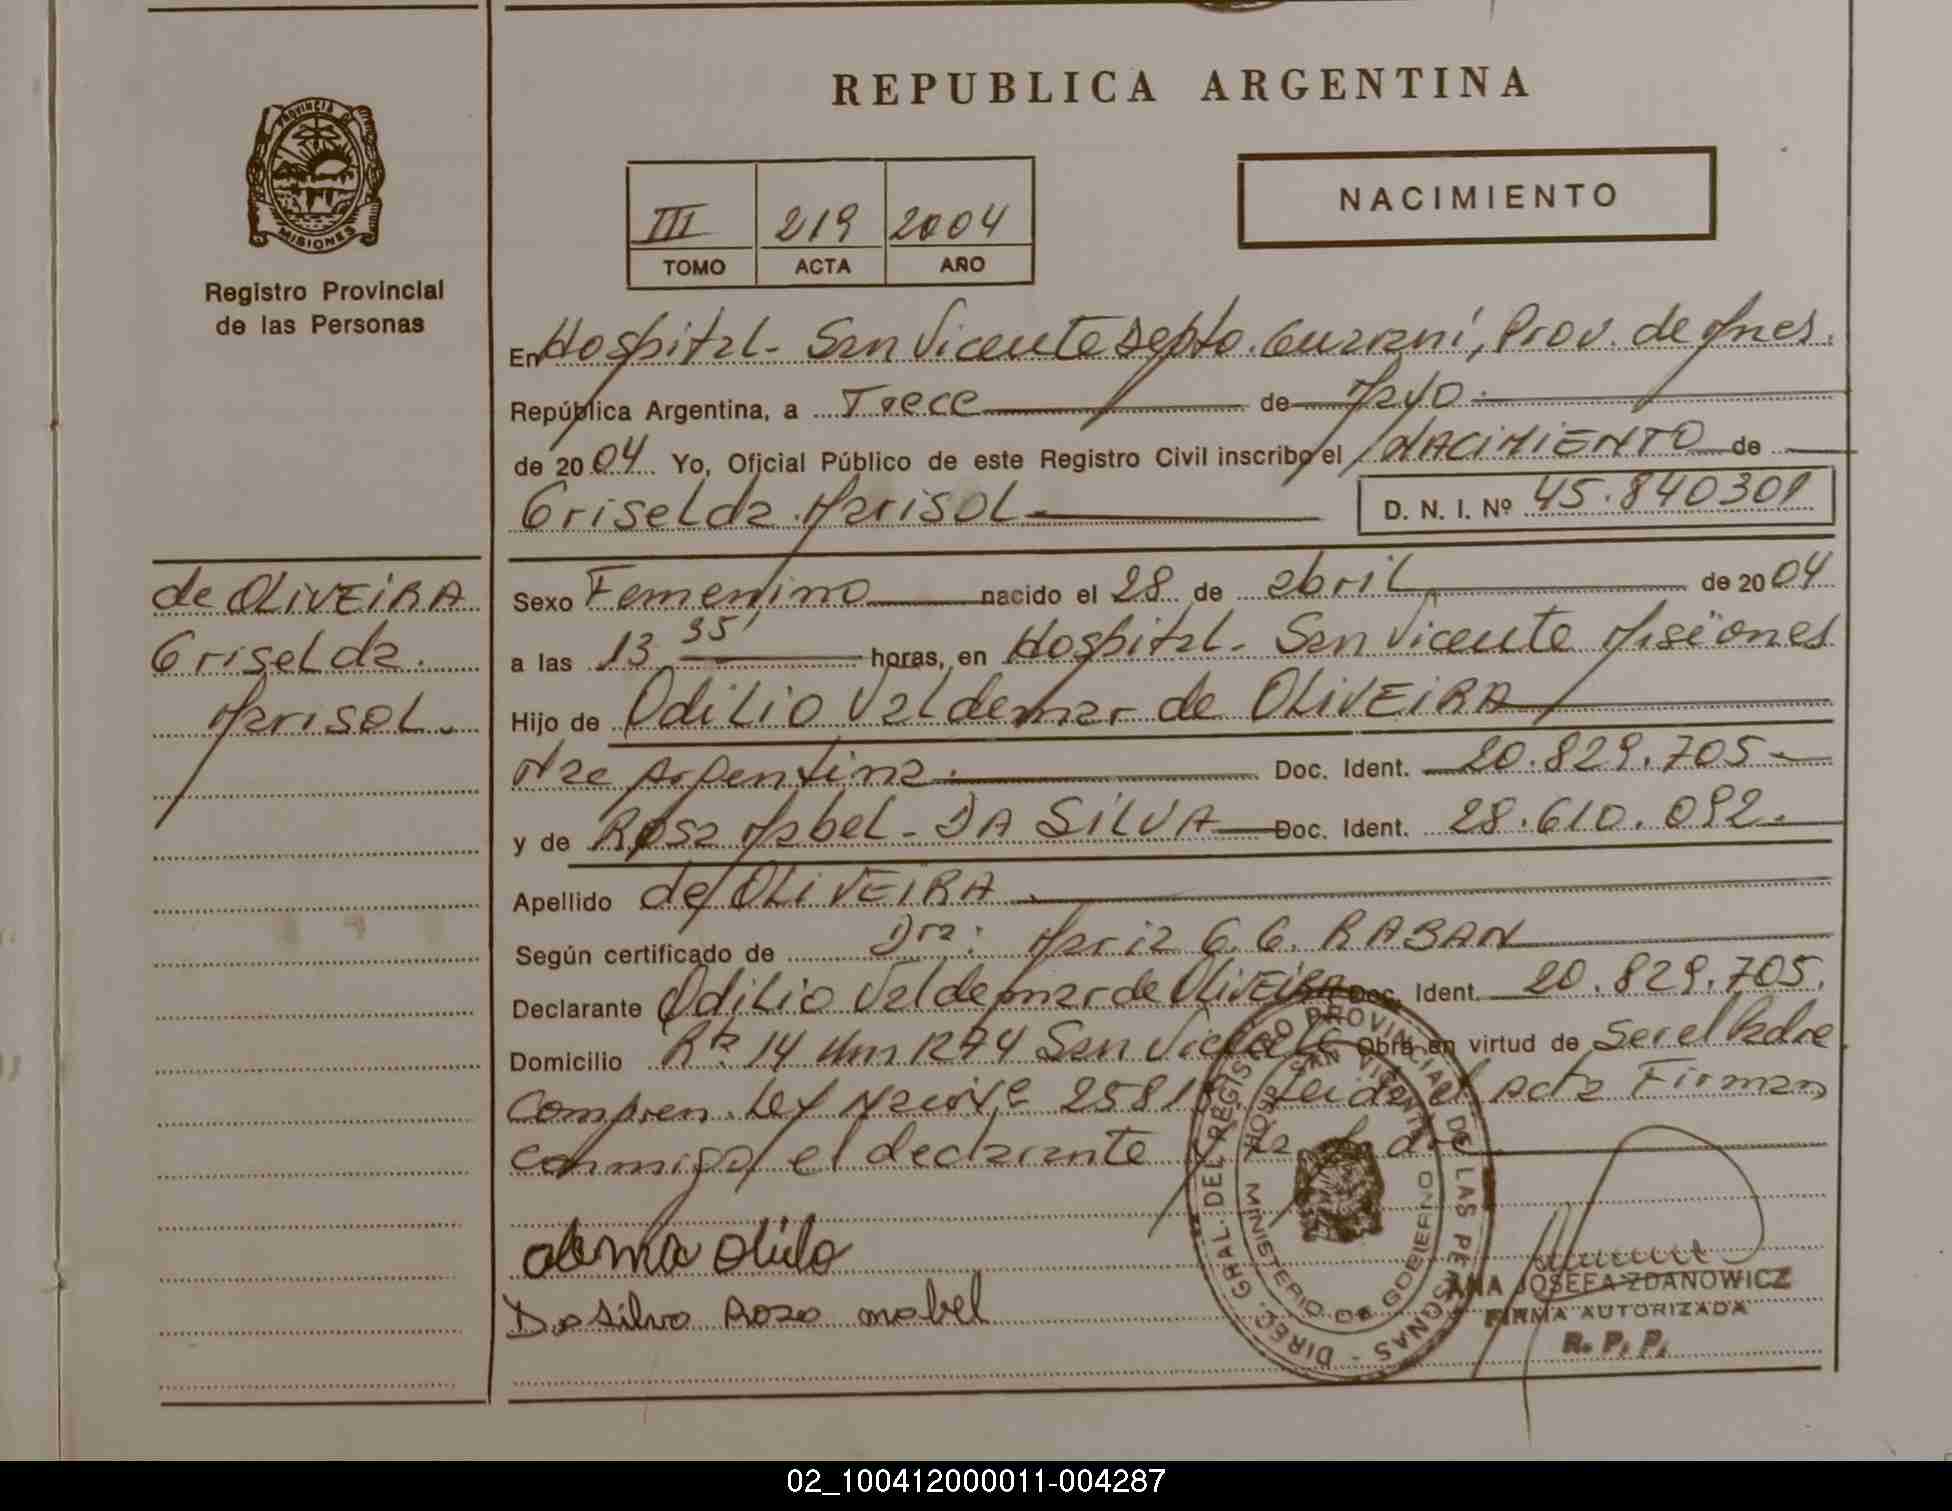 REPUBLICA ARGENTINA
PROVINCIA DE
MISIONES
Registro Provincial
de las Personas
III 219 2004
TOMO ACTA AÑO
NACIMIENTO
En Hospital - San Vicente Depto. Guaraní, Prov. de Mnes.
República Argentina, a Trece de Mayo
de 2004 Yo, Oficial Público de este Registro Civil inscribo el NACIMIENTO de
Griselda Marisol D. N. I. Nº 45.840301
de OLIVEIRA
Griselda
Marisol.
Sexo Femenino nacido el 28 de abril de 2004
a las 13 35' horas, en Hospital - San Vicente Misiones
Hijo de Odilio Valdemar de OLIVEIRA
Nac Argentina. Doc. Ident. 20.829.705
y de Rosa Mabel - DA SILVA Doc. Ident. 28.610.092.
Apellido de OLIVEIRA
Según certificado de Dra: Maria G. G. RABAN
Declarante Odilio Valdemar de OLIVEIRA Doc. Ident. 20.829.705.
Domicilio Rta 14 Km 1274 San Vicente Obra en virtud de Ser el Padre
Compren. Ley 25818. Leida el Acta Firman
conmigo, el declarante y la Madre
DIREC. GRAL. DEL REGISTRO PROVINCIAL DE LAS PERSONAS
HOSP. SAN VICENTE
MINISTERIO DE GOBIERNO
Da silva Rosa mabel
ANA JOSEFA ZDANOWICZ
FIRMA AUTORIZADA
R. P. P.
02_100412000011-004287